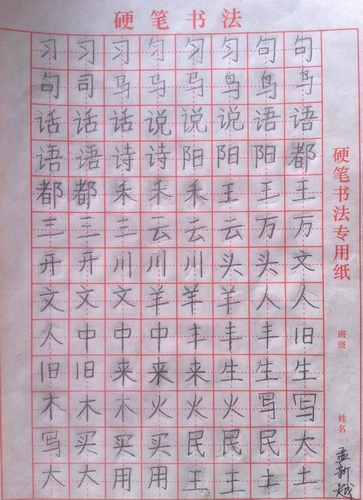 硬笔书法
习习习习习习句句
句司鸟鸟鸟鸟鸟鸟
话话话说说说语语
语语诗诗阳阳阳都
都都禾禾禾王王王
三三三云云云万万
开开川川川头头文
文文文羊羊羊人人
人中中中丰丰丰旧
旧旧来来来生生生
木木木火火火写写
写买买买民民民大
大大用用王王土土
硬笔书法专用纸
班级
姓名：孟新越